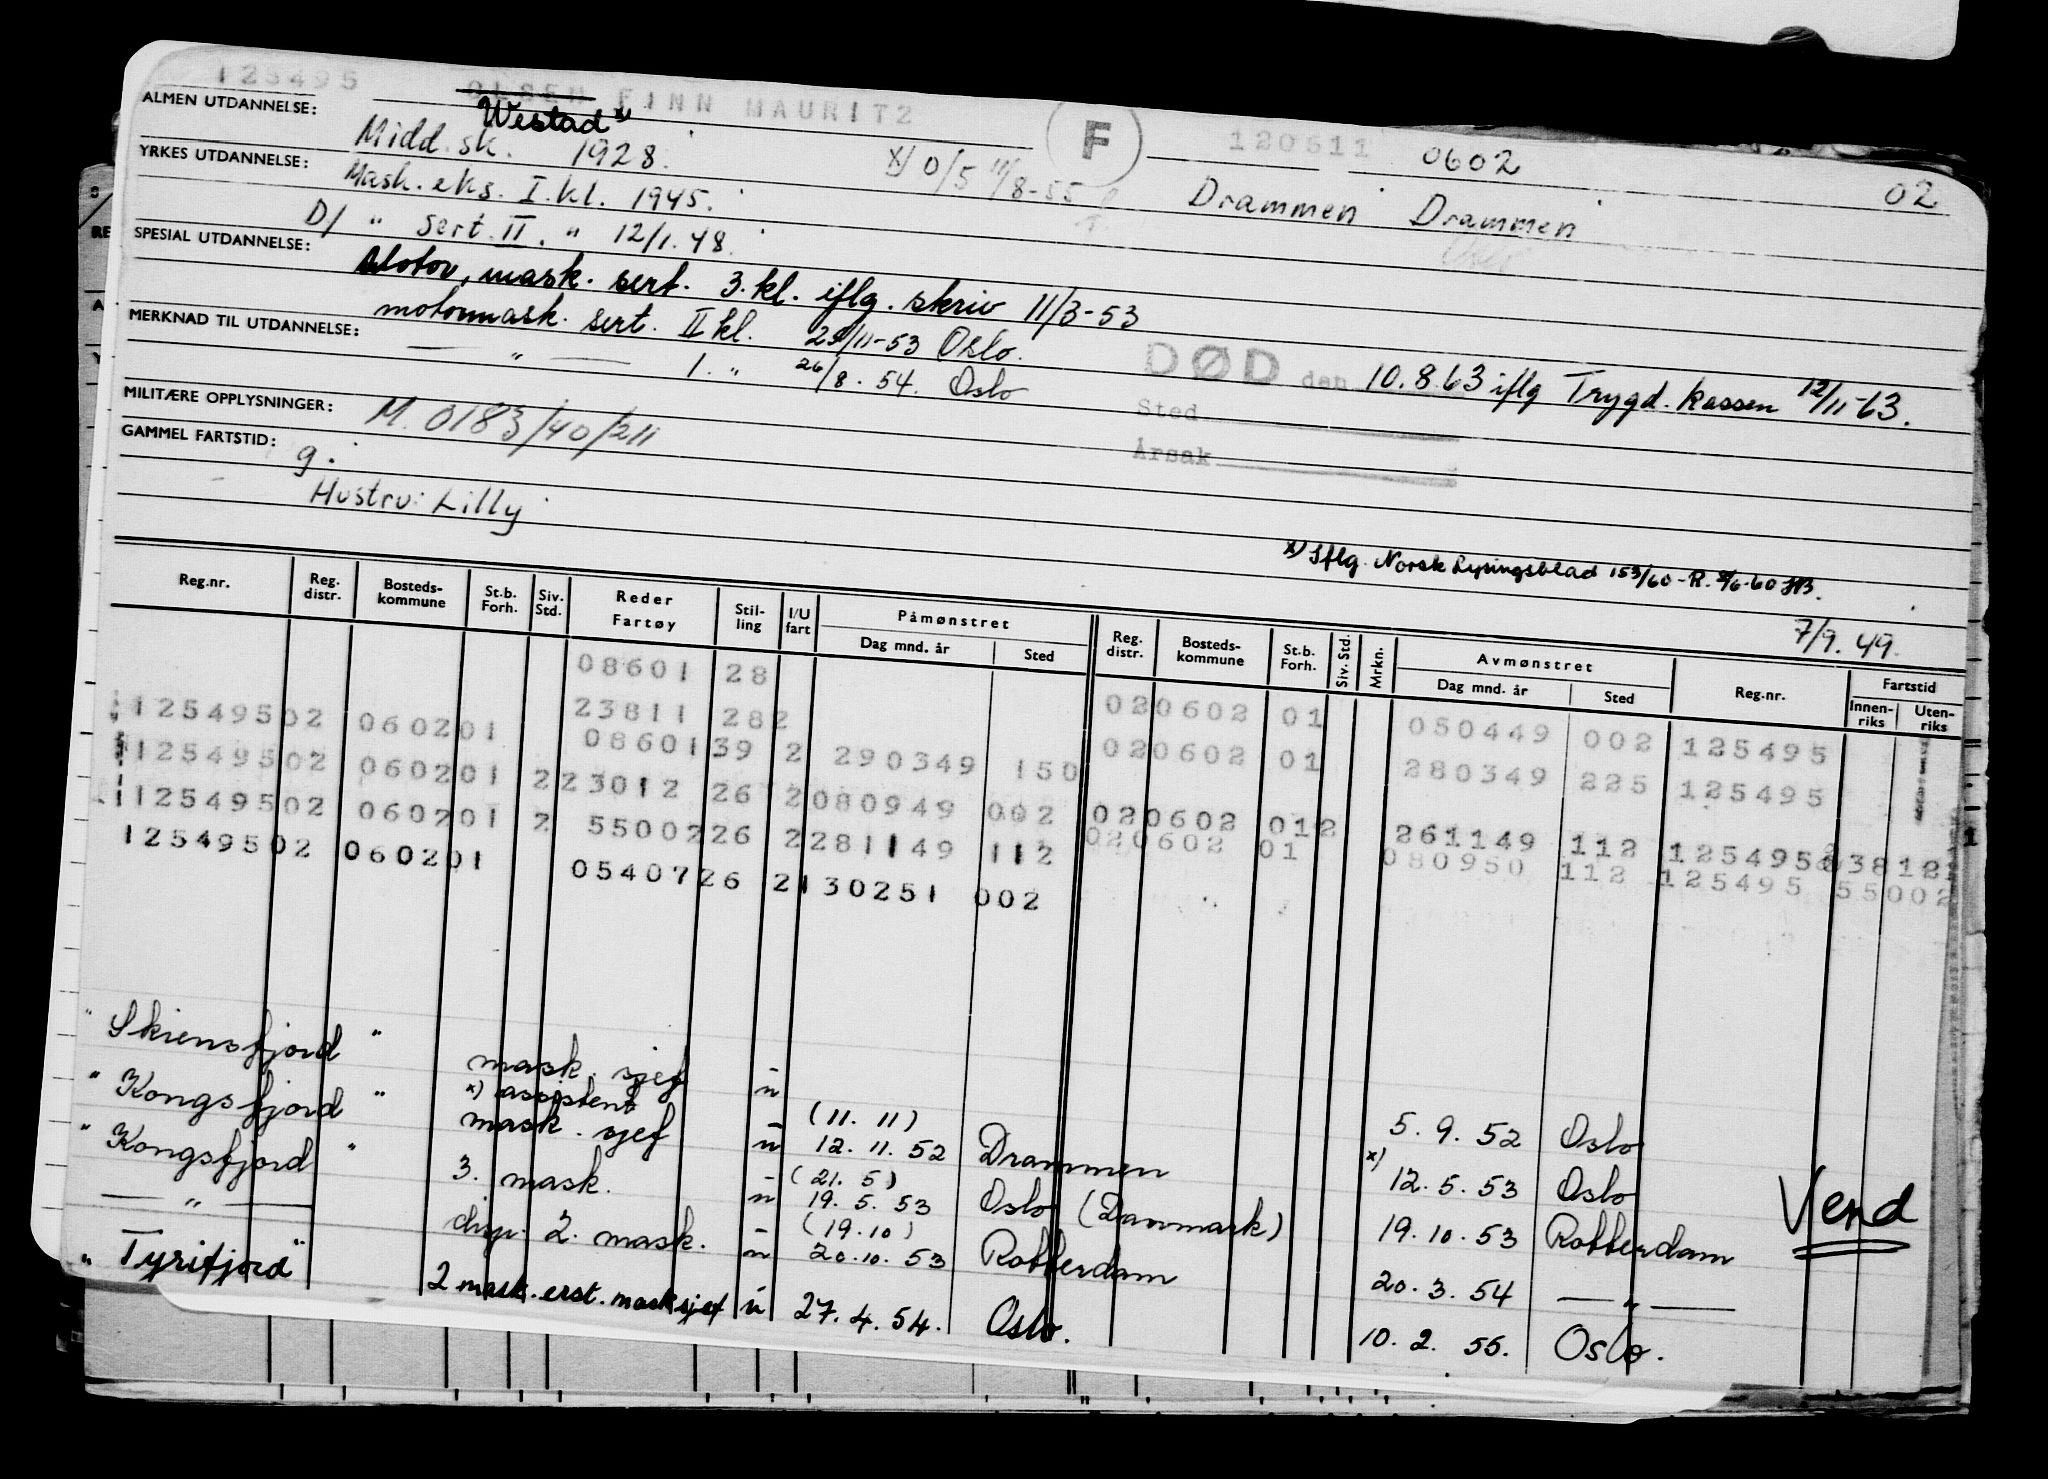 125495 OLSEN FINN MAURITZ F 120611 0602 02
Westad x)
ALMEN UTDANNELSE: Midd.sk. 1928. x) 0/5 11/8-55 Drammen Drammen
YRKES UTDANNELSE: Mask. eks. I. kl. 1945.
D/ " sert. II. " 12/1.48.
SPESIAL UTDANNELSE: Motor, mask. sert. 3. kl. iflg. skriv 11/3-53
motormask. sert. II kl. 23/11-53 Oslo.
MERKNAD TIL UTDANNELSE: — " — 1. " 26/8. 54. Oslo
DØD den 10.8.63 iflg Trygd. kassen 12/11-63.
Sted
Årsak
MILITÆRE OPPLYSNINGER: M. 0183/40/211
GAMMEL FARTSTID: g.
Hustru: Lilly
x) Iflg. Norsk Lysingsblad 153/60-R. 8/6-60
7/9. 49.
Reg.nr. Reg. distr. Bosteds-kommune St.b. Forh. Siv. Std. Reder Fartøy Stil-ling I/U fart Påmønstret Dag mnd. år Sted Reg. distr. Bosteds-kommune St.b. Forh. Siv. Std. Mrkn. Avmønstret Dag mnd. år Sted Reg.nr. Fartstid Innen-riks Uten-riks
08601 28
23811 282 020602 01 050449 002 125495
125495 02 0602 01 08601 39 2 290349 150 020602 01 280349 225 125495
125495 02 0602 01 2 23012 26 2 080949 002 020602 01 2 261149 112 125495 23812
125495 02 0602 01 2 55002 26 2 281149 112 020602 01 080950 112 125495 55002
125495 02 0602 01 05407 26 2 130251 002
" Skiensfjord " mask. sjef u 5. 9. 52 Oslo
x) assistent (11. 11) x)
" Kongsfjord " mask. sjef u 12. 11. 52 Drammen 12. 5. 53 Oslo
(21. 5)
" Kongsfjord " 3. mask. u 19. 5. 53 Oslo (Danmark) 19. 10. 53 Rotterdam
(19.10)
— " — disp. 2. mask. u 20. 10. 53 Rotterdam 20. 3. 54 — " —
" Tyrifjord " 2 mask. erst. masksjef u 27. 4. 54. Oslo. 10. 2. 55. Oslo.
Vend